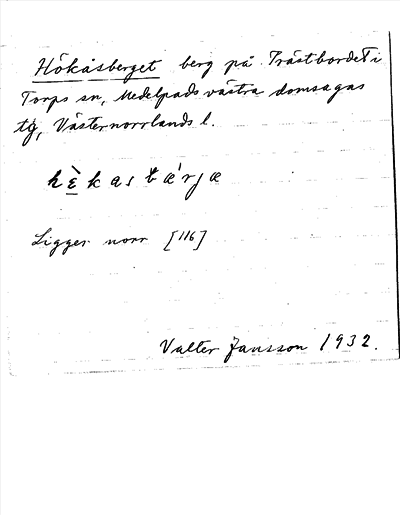 Hökåsberget berg på Prästbordet i
Torps sn, Medelpads västra domsagas
tg, Västernorrlands l.
hɛ̀kasbæ̀rjæ
Ligger norr [116]
Valter Jansson 1932.